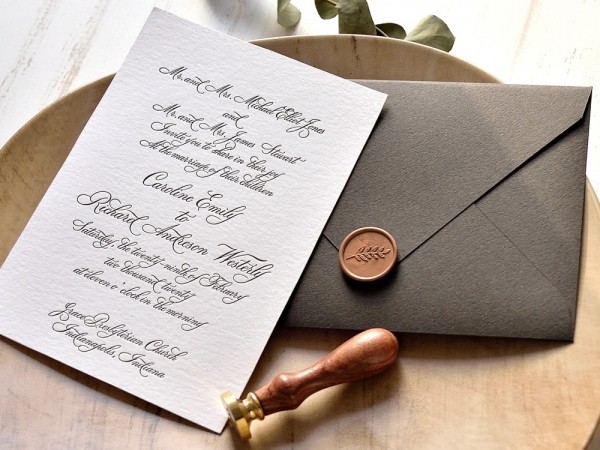 Mr. and Mrs. Michael Elliot Jones
and
Mr. and Mrs. James Stewart
Invite you to share in their joy
At the marriage of their children
Caroline Emily
to
Richard Andreson Westerly
Saturday, the twenty-ninth of February
two thousand twenty
at eleven o'clock in the morning
Grace Presbyterian Church
Indianapolis, Indiana